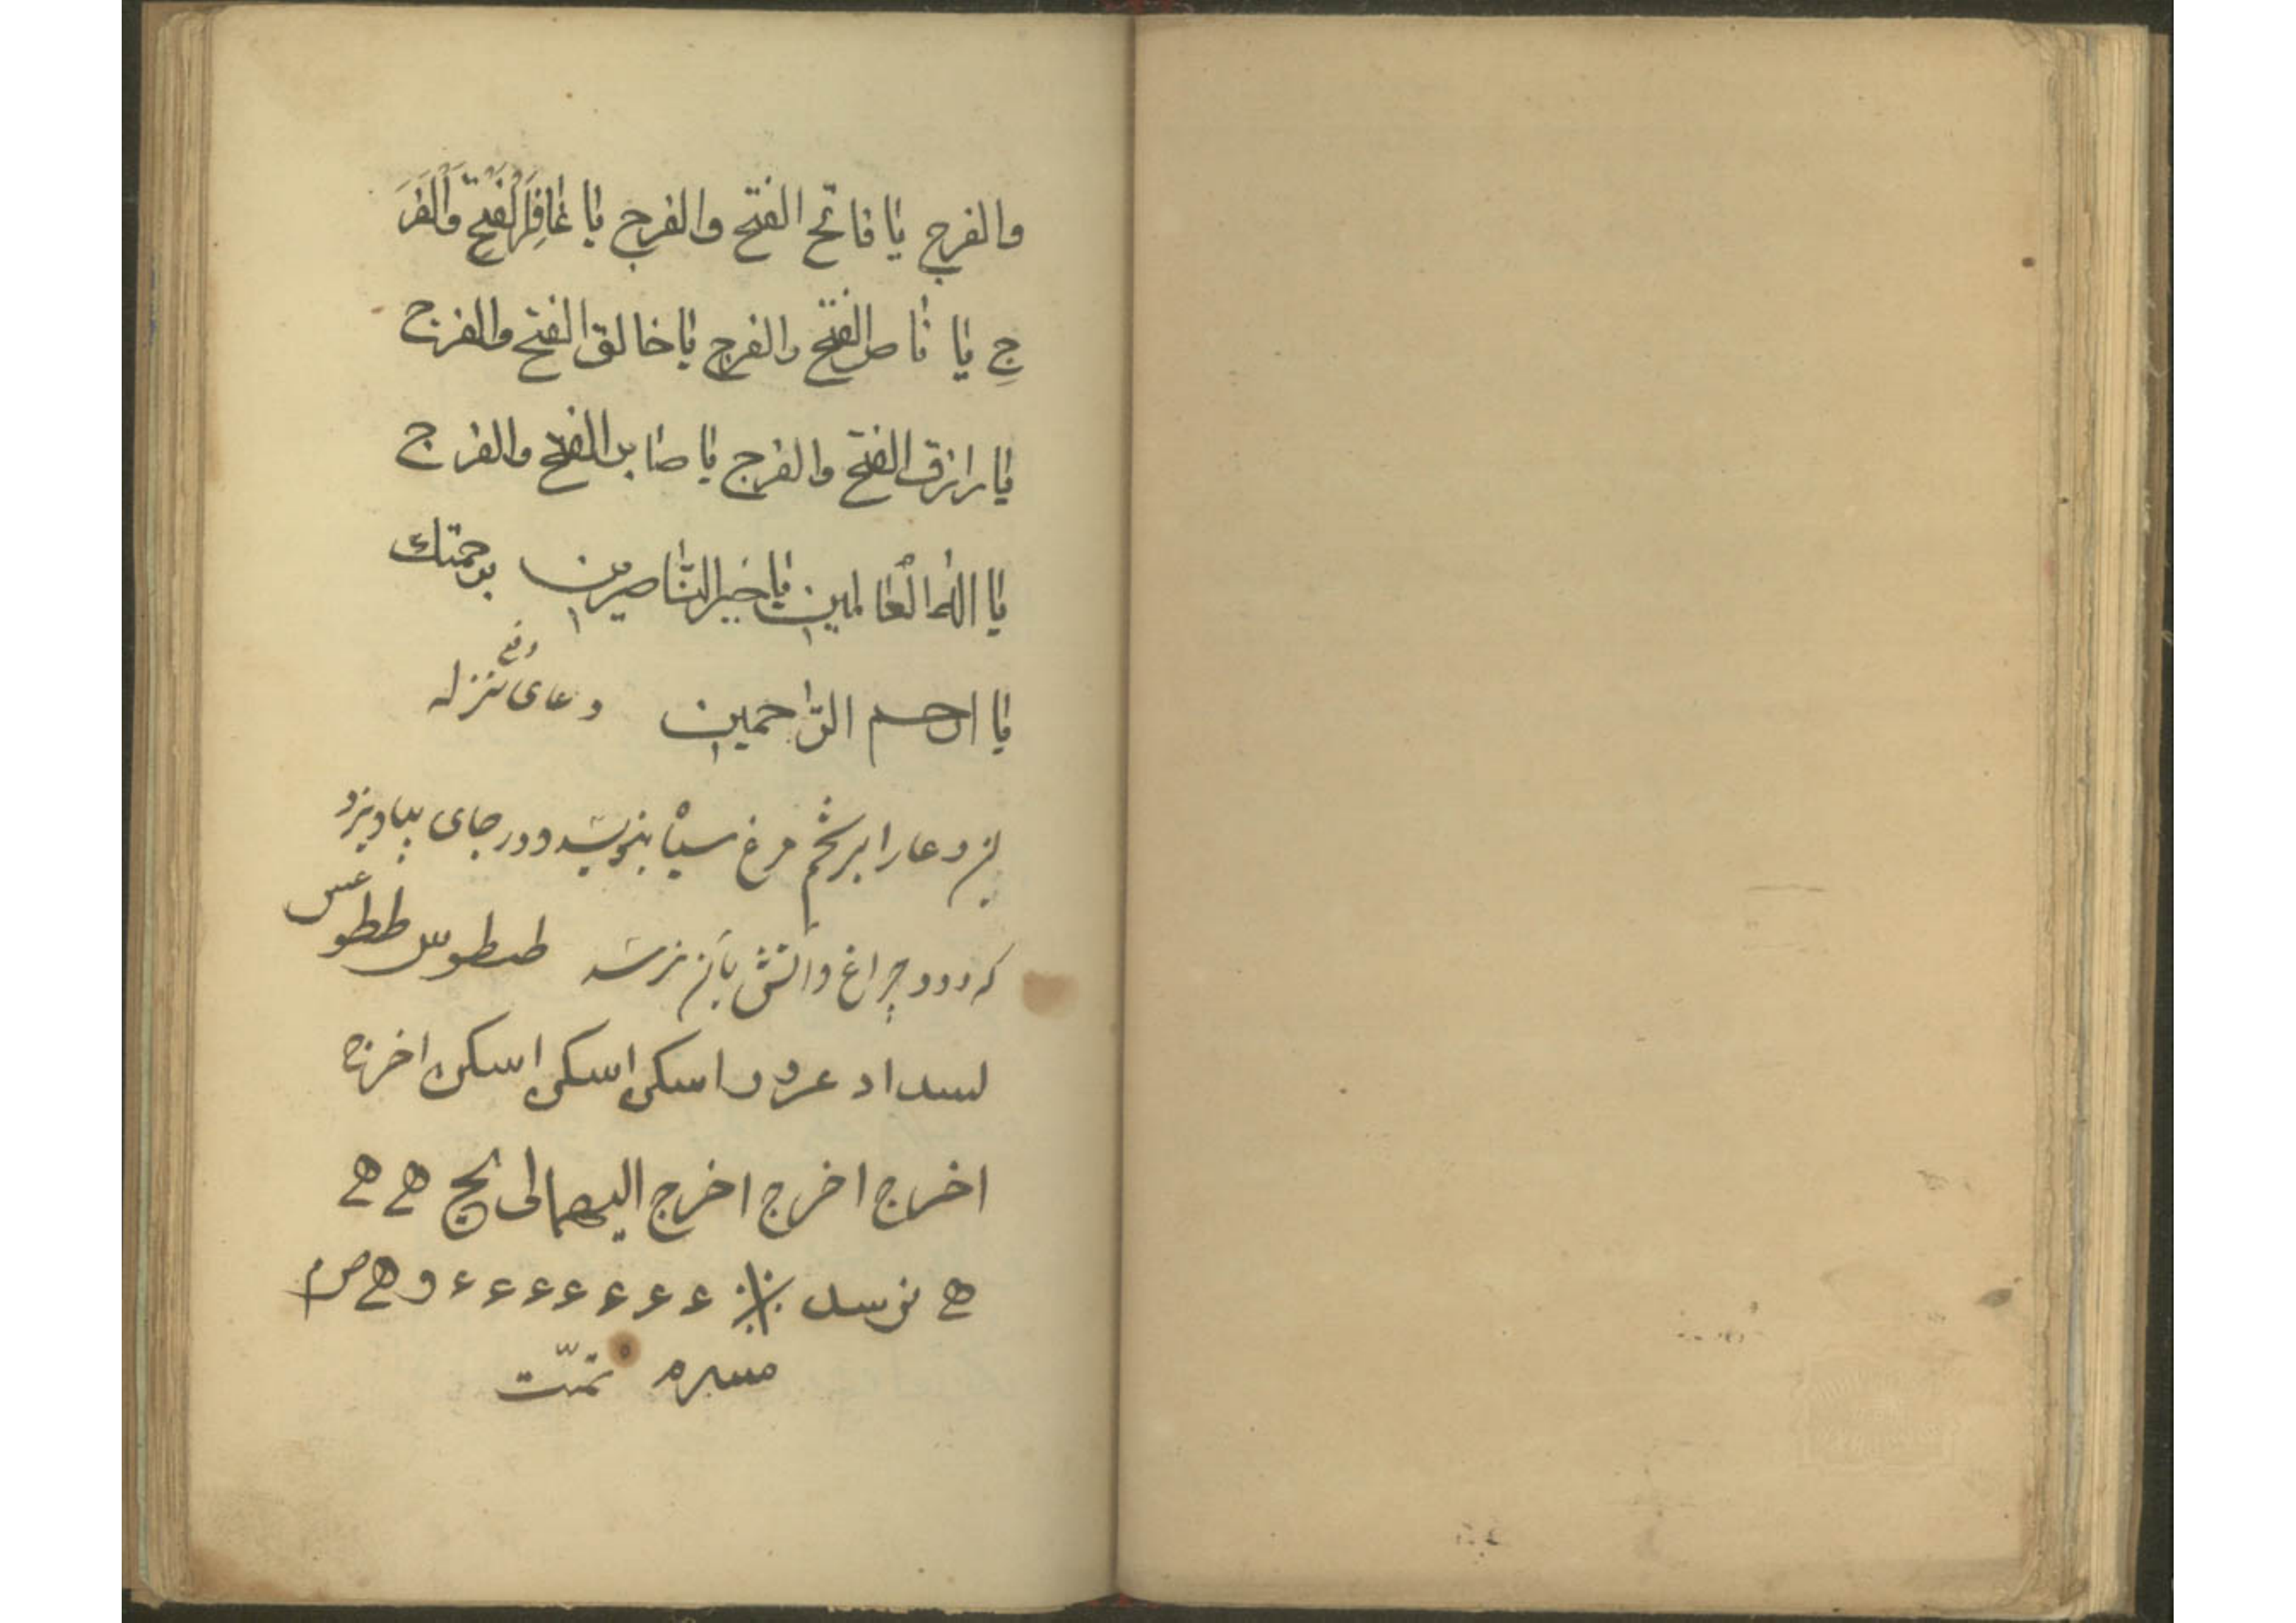 والفرج یا فاتح الفتح والفرج یا غافِرَ الْفَتْحِ وَالْفَرَ
جِ یا ناصر الفتح والفرج یا خالق الفتح والفرج
یا رازق الفتح والفرج یا صابر الفتح والفرج
یا اله الْعالمین یا خیر النّاصرین برحمتك
یا ارحم الرّاحمین دعای دفع نزله
این دعا را بر تخم مرغ سیاه بنویسد و در جای بیاویزد
که دود چراغ و اتش بآن نرسد طسطوس ططوس
اسکن اسکن اسکن اخرج
اخرج اخرج اخرج هے هے
هے ء ء ء ء ء ء ء و هے ص م
تمّت